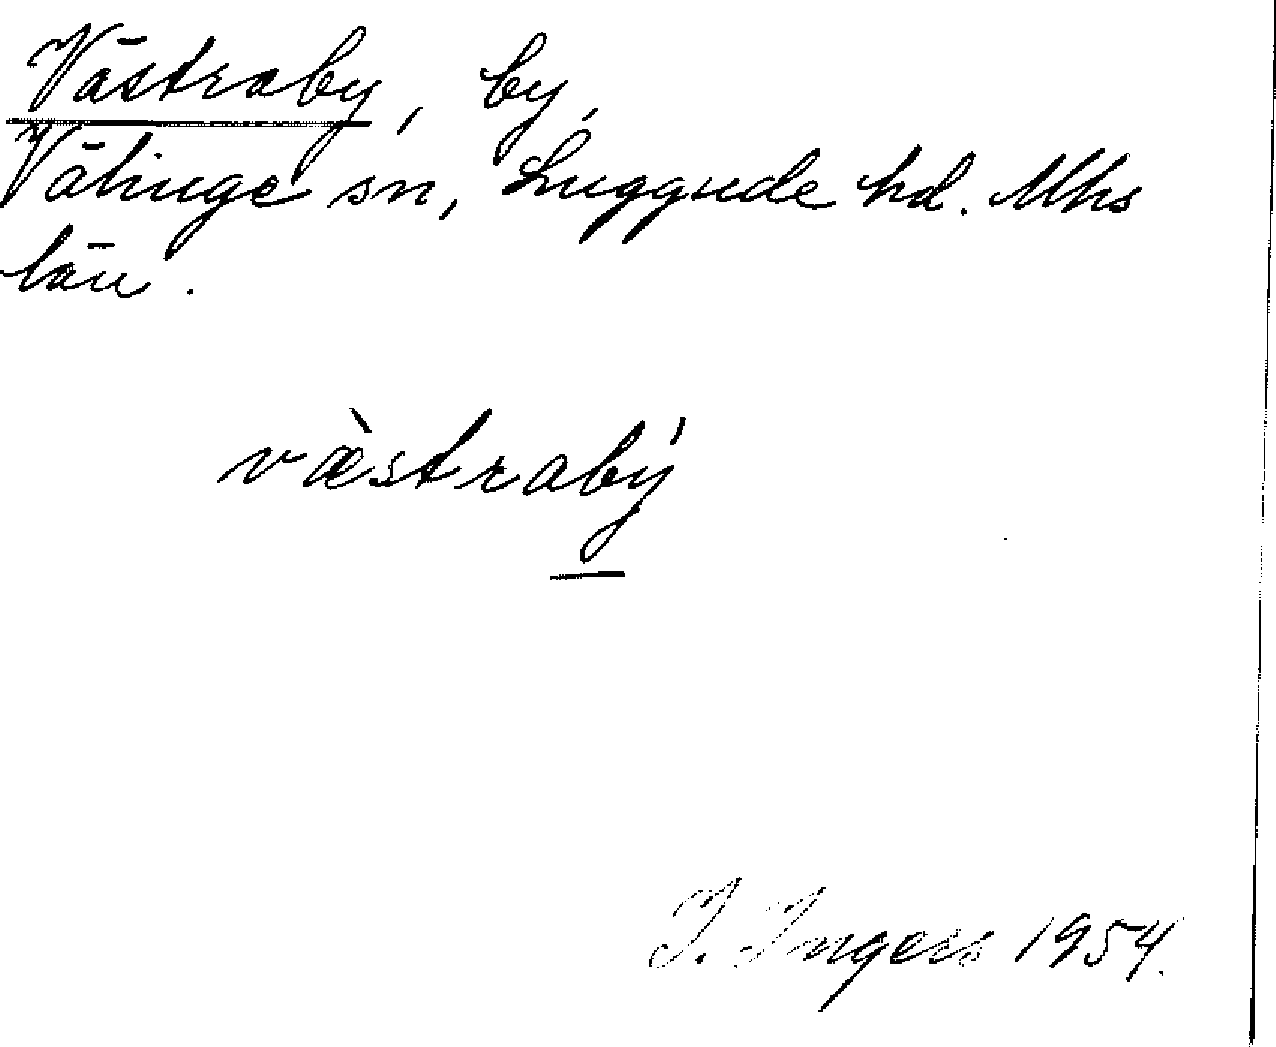 Västraby, by,
Välinge sn, Luggude hd. Mhs
län.
væ̀strabý
I. Ingers 1954.